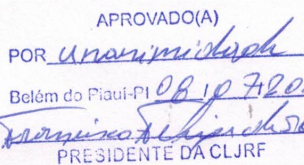 APROVADO(A)
POR unanimidade
Belém do Piauí-PI 08 107120
Francisco
PRESIDENTE DA CLJRF